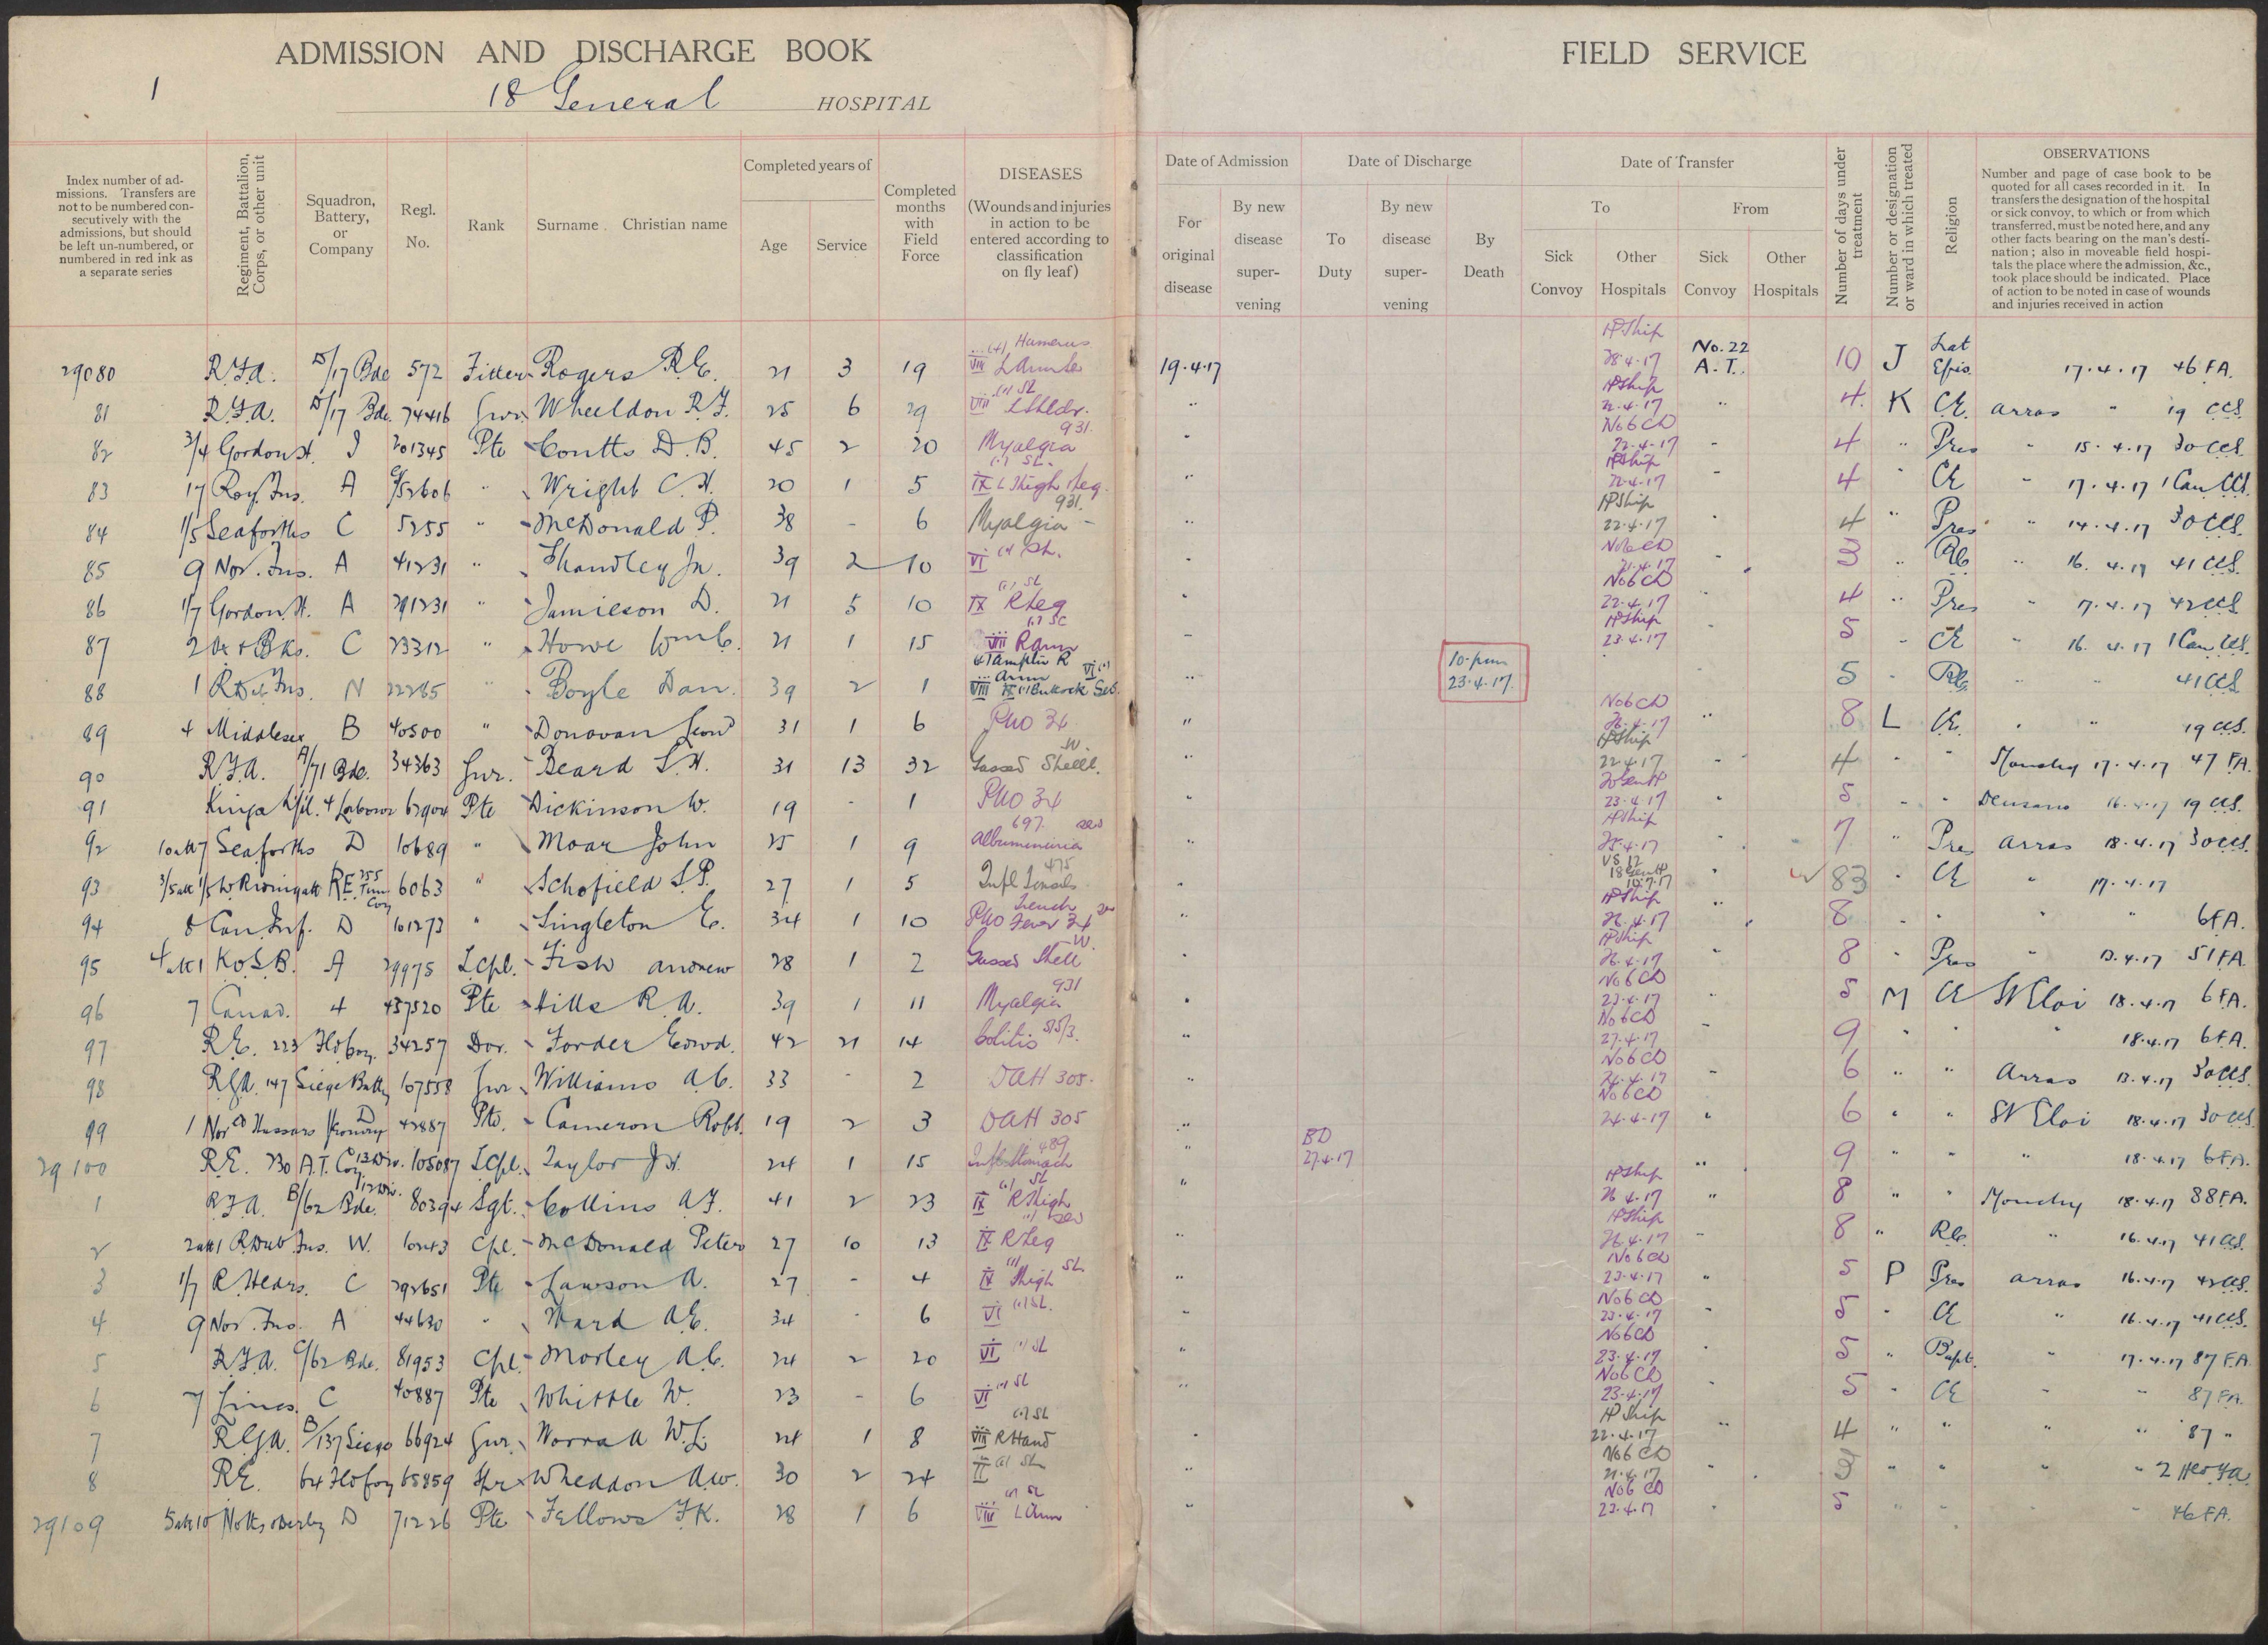 ADMISSION AND DISCHARGE BOOK
1
18 General HOSPITAL
FIELD SERVICE
Index number of admissions. Transfers are not to be numbered consecutively with the admissions, but should be left un-numbered, or numbered in red ink as a separate series
Regiment, Battalion, Corps, or other unit
Squadron, Battery, or Company
Regl. No.
Rank
Surname Christian name
Completed years of
Age Service
Completed months with Field Force
DISEASES
(Wounds and injuries in action to be entered according to classification on fly leaf)
Date of Admission
For original disease
By new disease supervening
Date of Discharge
To Duty
By new disease supervening
By Death
Date of Transfer
To
Sick Convoy
Other Hospitals
From
Sick Convoy
Other Hospitals
Number of days under treatment
Number or designation or ward in which treated
Religion
OBSERVATIONS
Number and page of case book to be quoted for all cases recorded in it. In transfers the designation of the hospital or sick convoy, to which or from which transferred, must be noted here, and any other facts bearing on the man's destination; also in moveable field hospitals the place where the admission, &c., took place should be indicated. Place of action to be noted in case of wounds and injuries received in action
29080 R.F.A. D/17 Bde 572 Fitter Rogers R.E. 21 3 19 VIII Humerus 19.4.17 HShip 28.4.17 No.22 A.T. 10 J 17.4.17 46 FA.
81 R.F.A. D/17 Bde. 74416 Gnr. Wheeldon R.F. 25 6 29 VIII (1) Sl L Shldr. " HShip 22.4.17 " 4 K CE. Arras " 19 CCS.
82 3/4 Gordon H. J 201345 Pte Coutts D.B. 45 2 20 Myalgia 931. " No 6 CD 22.4.17 " 4 " Pres " 15.4.17 30 CCS.
83 17 Roy. Fus. A G/52606 " Wright C.H. 20 1 5 IX (1) Sl. L Thigh Leg. " HShip 22.4.17 " 4 " CE " 17.4.17 1 Can CCS.
84 1/5 Seaforths C 5255 " McDonald P. 38 - 6 Myalgia 931. " HShip 22.4.17 " 4 " Pres " 14.4.17 30 CCS.
85 9 Nor. Fus. A 41231 " Handley Jn. 39 2 10 VI (1) Sl. " No 6 CD 21.4.17 " 3 " RC " 16.4.17 41 CCS.
86 1/7 Gordon H. A 291231 " Jamieson D. 21 5 10 IX (1) Sl R Leg " No 6 CD 22.4.17 4 " Pres " 17.4.17 42 CCS
87 2 Ox & Bks. C 23312 " Howe Wm C. 21 1 15 VIII R Arm " HShip 23.4.17 5 " CE " 16.4.17 1 Can CCS.
88 1 R Dub Fus. N 22285 " Boyle Dan. 39 2 1 VIII Amptn R Arm VI (1) IX (1) Buttock Sev. " 10 pm 23.4.17. 5 " RC. " " 41 CCS
89 4 Middlesex B 40500 " Donovan Leond 31 1 6 PUO 34 " No 6 CD 26.4.17 " 8 L CE. " " 19 CCS.
90 R.F.A. A/71 Bde. 34363 Gnr. Beard S.H. 31 13 32 Gassed Shell W. " HShip 22.4.17 4 " " Monchy 17.4.17 47 FA.
91 Kings L'pl. 4 Labour 62904 Pte Dickinson W. 19 - 1 PUO 34 " 23.4.17 " 5 " " 16.4.17 19 CCS.
92 10 att 7 Seaforths D 10689 " Moar John 25 1 9 Albuminuria 697. " HShip 25.4.17 " 7 " Pres Arras 18.4.17 30 CCS.
93 3/5 att 1/5 W Riding att RE 255 Tunn Coy 6063 " Schofield S.P. 27 1 5 Infl Tonsils 475 VS 12 18 Genl 10.7.17 " 83 " CE " 17.4.17
94 8 Can. Inf. D 101273 " Singleton E. 34 1 10 PUO Trench Fever 34 " HShip 26.4.17 " 8 " " " " 6 FA.
95 4 att 1 K.O.S.B. A 29975 L.Cpl. Fish Andrew 28 1 2 Gassed Shell W. " HShip 26.4.17 " 8 " Pres " 13.4.17 51 FA
96 7 Canad. 4 437520 Pte Hills R.A. 39 1 11 Myalgia 931 " No 6 CD 23.4.17 " 5 M CE St Eloi 18.4.17 6 FA.
97 R.E. 223 Fld Coy. 34257 Dvr. Forder Edwd. 42 21 14 Colitis 515/3. " No 6 CD 27.4.17 " 9 " " " 18.4.17 6 FA.
98 RGA. 147 Siege Batty 107558 Gnr Williams A.C. 33 - 2 DAH 305. " No 6 CD 24.4.17 " 6 " " Arras 13.4.17 30 CCS.
99 1 Nor'd Hussars Yeomry D 42887 Pte. Cameron Robt. 19 2 3 DAH 305 " No 6 CD 24.4.17 " 6 " " St Eloi 18.4.17 30 CCS
29100 R.E. 230 A.T. Coy 105087 L.Cpl. Taylor J.H. 24 1 15 Infl Stomach 489 " BD 27.4.17 " 9 " " " 18.4.17 6 FA.
1 R.F.A. B/62 Bde. 12 Div. 80394 Sgt. Collins A.F. 41 2 23 IX (1) Sl R Thigh " HShip 26.4.17 " 8 " " Monchy 18.4.17 88 FA.
2 2 att 1 R Dub Fus. W. 10243 Cpl. McDonald Peter 27 10 13 IX (1) sev R Leg " HShip 26.4.17 " 8 " RC. " 16.4.17 41 CCS.
3 1/7 R Hldrs. C 292651 Pte Lawson A. 27 - 4 IX (1) Sl Thigh " No 6 CD 23.4.17 " 5 P Pres Arras 16.4.17 42 CCS.
4 9 Nor. Fus. A 44630 " Ward A.E. 34 - 6 VI (1) Sl. " No 6 CD 23.4.17 " 5 " CE " 16.4.17 41 CCS.
5 R.F.A. C/62 Bde. 81953 Cpl. Morley A.C. 24 2 20 VI (1) Sl " No 6 CD 23.4.17 " 5 " Bapt. " 17.4.17 87 F.A
6 7 Lincs. C 40887 Pte Whittle W. 23 - 6 VI (1) Sl " No 6 CD 23.4.17 " 5 " CE " " 87 FA.
7 RGA. B/137 Siege 66924 Gnr. Worrall W.L. 24 1 8 VIII (1) Sl R Hand " HShip 22.4.17 " 4 " " " " 87 "
8 RE. 64 Fld Coy 65859 Spr Wheddon A.W. 30 2 24 II (1) Sl " No 6 CD 21.4.17 " 3 " " " " 2 FA
29109 5 att 10 Notts & Derby D 71226 Pte Fellows F.K. 28 1 6 VIII (1) Sl L Arm " No 6 CD 23.4.17 " 5 " " " " 46 FA.